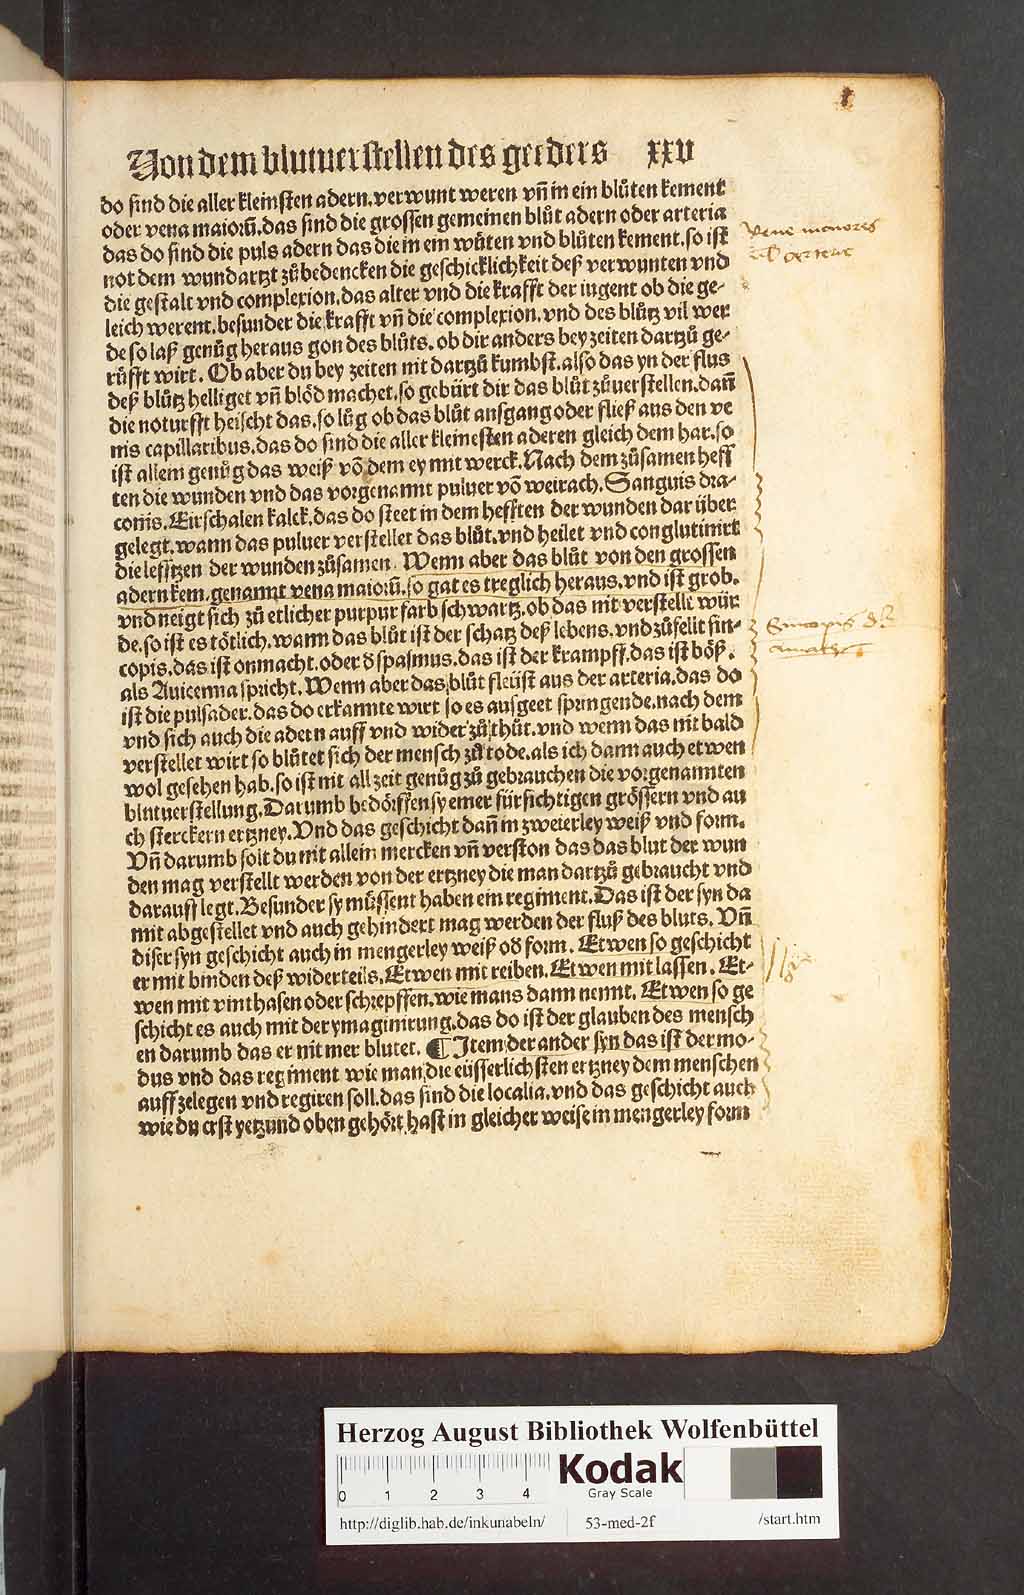 Von dem blutuerstellen des geeders xxv
do sind die aller kleinsten adern. verwunt weren vñ in ein blůten kement
oder vena maiorũ. das sind die grossen gemeinen blůt adern oder arteria
das do sind die puls adern das die in ein wůten vnd blůten kement. so ist
not dem wundartzt zů bedencken die geschicklichkeit deß verwunten vnd
die gestalt vnd complexion. das alter vnd die krafft der iugent ob die ge-
leich werent. besunder die krafft vñ die complexion. vnd des blůtz vil wer
de so laß genůg heraus gon des blůts. ob dir anders bey zeiten dartzů ge-
růfft wirt. Ob aber du bey zeiten nit dartzů kumbst. also das yn der flus
deß blůtz helliget vñ blöd machet. so gebürt dir das blůt zůuerstellen. dañ
die noturfft heischt das. so lůg ob das blůt ausgang oder fließ aus den ve
nis capillaribus. das do sind die aller kleinesten aderen gleich dem har. so
ist allein genůg das weiß võ dem ey mit werck. Nach dem zůsamen heff
ten die wunden vnd das vorgenannt puluer võ weirach. Sanguis dra-
conis. Eirschalen kalck. das do steet in dem hefften der wunden dar über
gelegt. wann das puluer verstellet das blůt. vnd heilet vnd conglutinirt
die lefftzen der wunden zůsamen. Wenn aber das blůt von den grossen
adern kem. genannt vena maiorũ. so gat es treglich heraus. vnd ist grob.
vnd neigt sich zů etlicher purpur farb schwartz. ob das nit verstellt wür
de. so ist es tötlich. wann das blůt ist der schatz deß lebens. vnd zůfellt sin-
copis. das ist onmacht. oder d spasmus. das ist der krampff. das ist böß.
als Auicenna spricht. Wenn aber das blůt fleüst aus der arteria. das do
ist die pulsader. das do erkannte wirt so es ausgeet springende. nach dem
vnd sich auch die adern auff vnd wider zů thůt. vnd wenn das nit bald
verstellet wirt so blůtet sich der mensch zů tode. als ich dann auch etwen
wol gesehen hab. so ist nit all zeit genůg zů gebrauchen die vorgenannten
blutuerstellung. Darumb bedörffen sy einer fürsichtigen grössern vnd au
ch sterckern ertzney. Vnd das geschicht dañ in zweierley weiß vnd form.
Vñ darumb solt du nit allein mercken vñ verston das das blut der wun
den mag verstellt werden von der ertzney die man dartzů gebraucht vnd
darauff legt. Besunder sy můssent haben ein regiment. Das ist der syn da
mit abgestellet vnd auch gehindert mag werden der fluß des bluts. Vñ
diser syn geschicht auch in mengerley weiß od form. Etwen so geschicht
er mit binden deß widerteils. Etwen mit reiben. Etwen mit lassen. Et-
wen mit vinthasen oder schrepffen. wie mans dann nennt. Etwen so ge
schicht es auch mit der ymaginirung. das do ist der glauben des mensch
en darumb das er nit mer blutet. ¶ Item der ander syn das ist der mo-
dus vnd das regiment wie man die eüsserlichsten ertzney dem menschen
auff zelegen vnd regiren soll. das sind die localia. vnd das geschicht auch
wie du erst yetzund oben gehört hast in gleicher weise in mengerley form
Vene maiores
Sincopis
Herzog August Bibliothek Wolfenbüttel
0 1 2 3 4
Kodak
Gray Scale
http://diglib.hab.de/inkunabeln/ 53-med-2f /start.htm